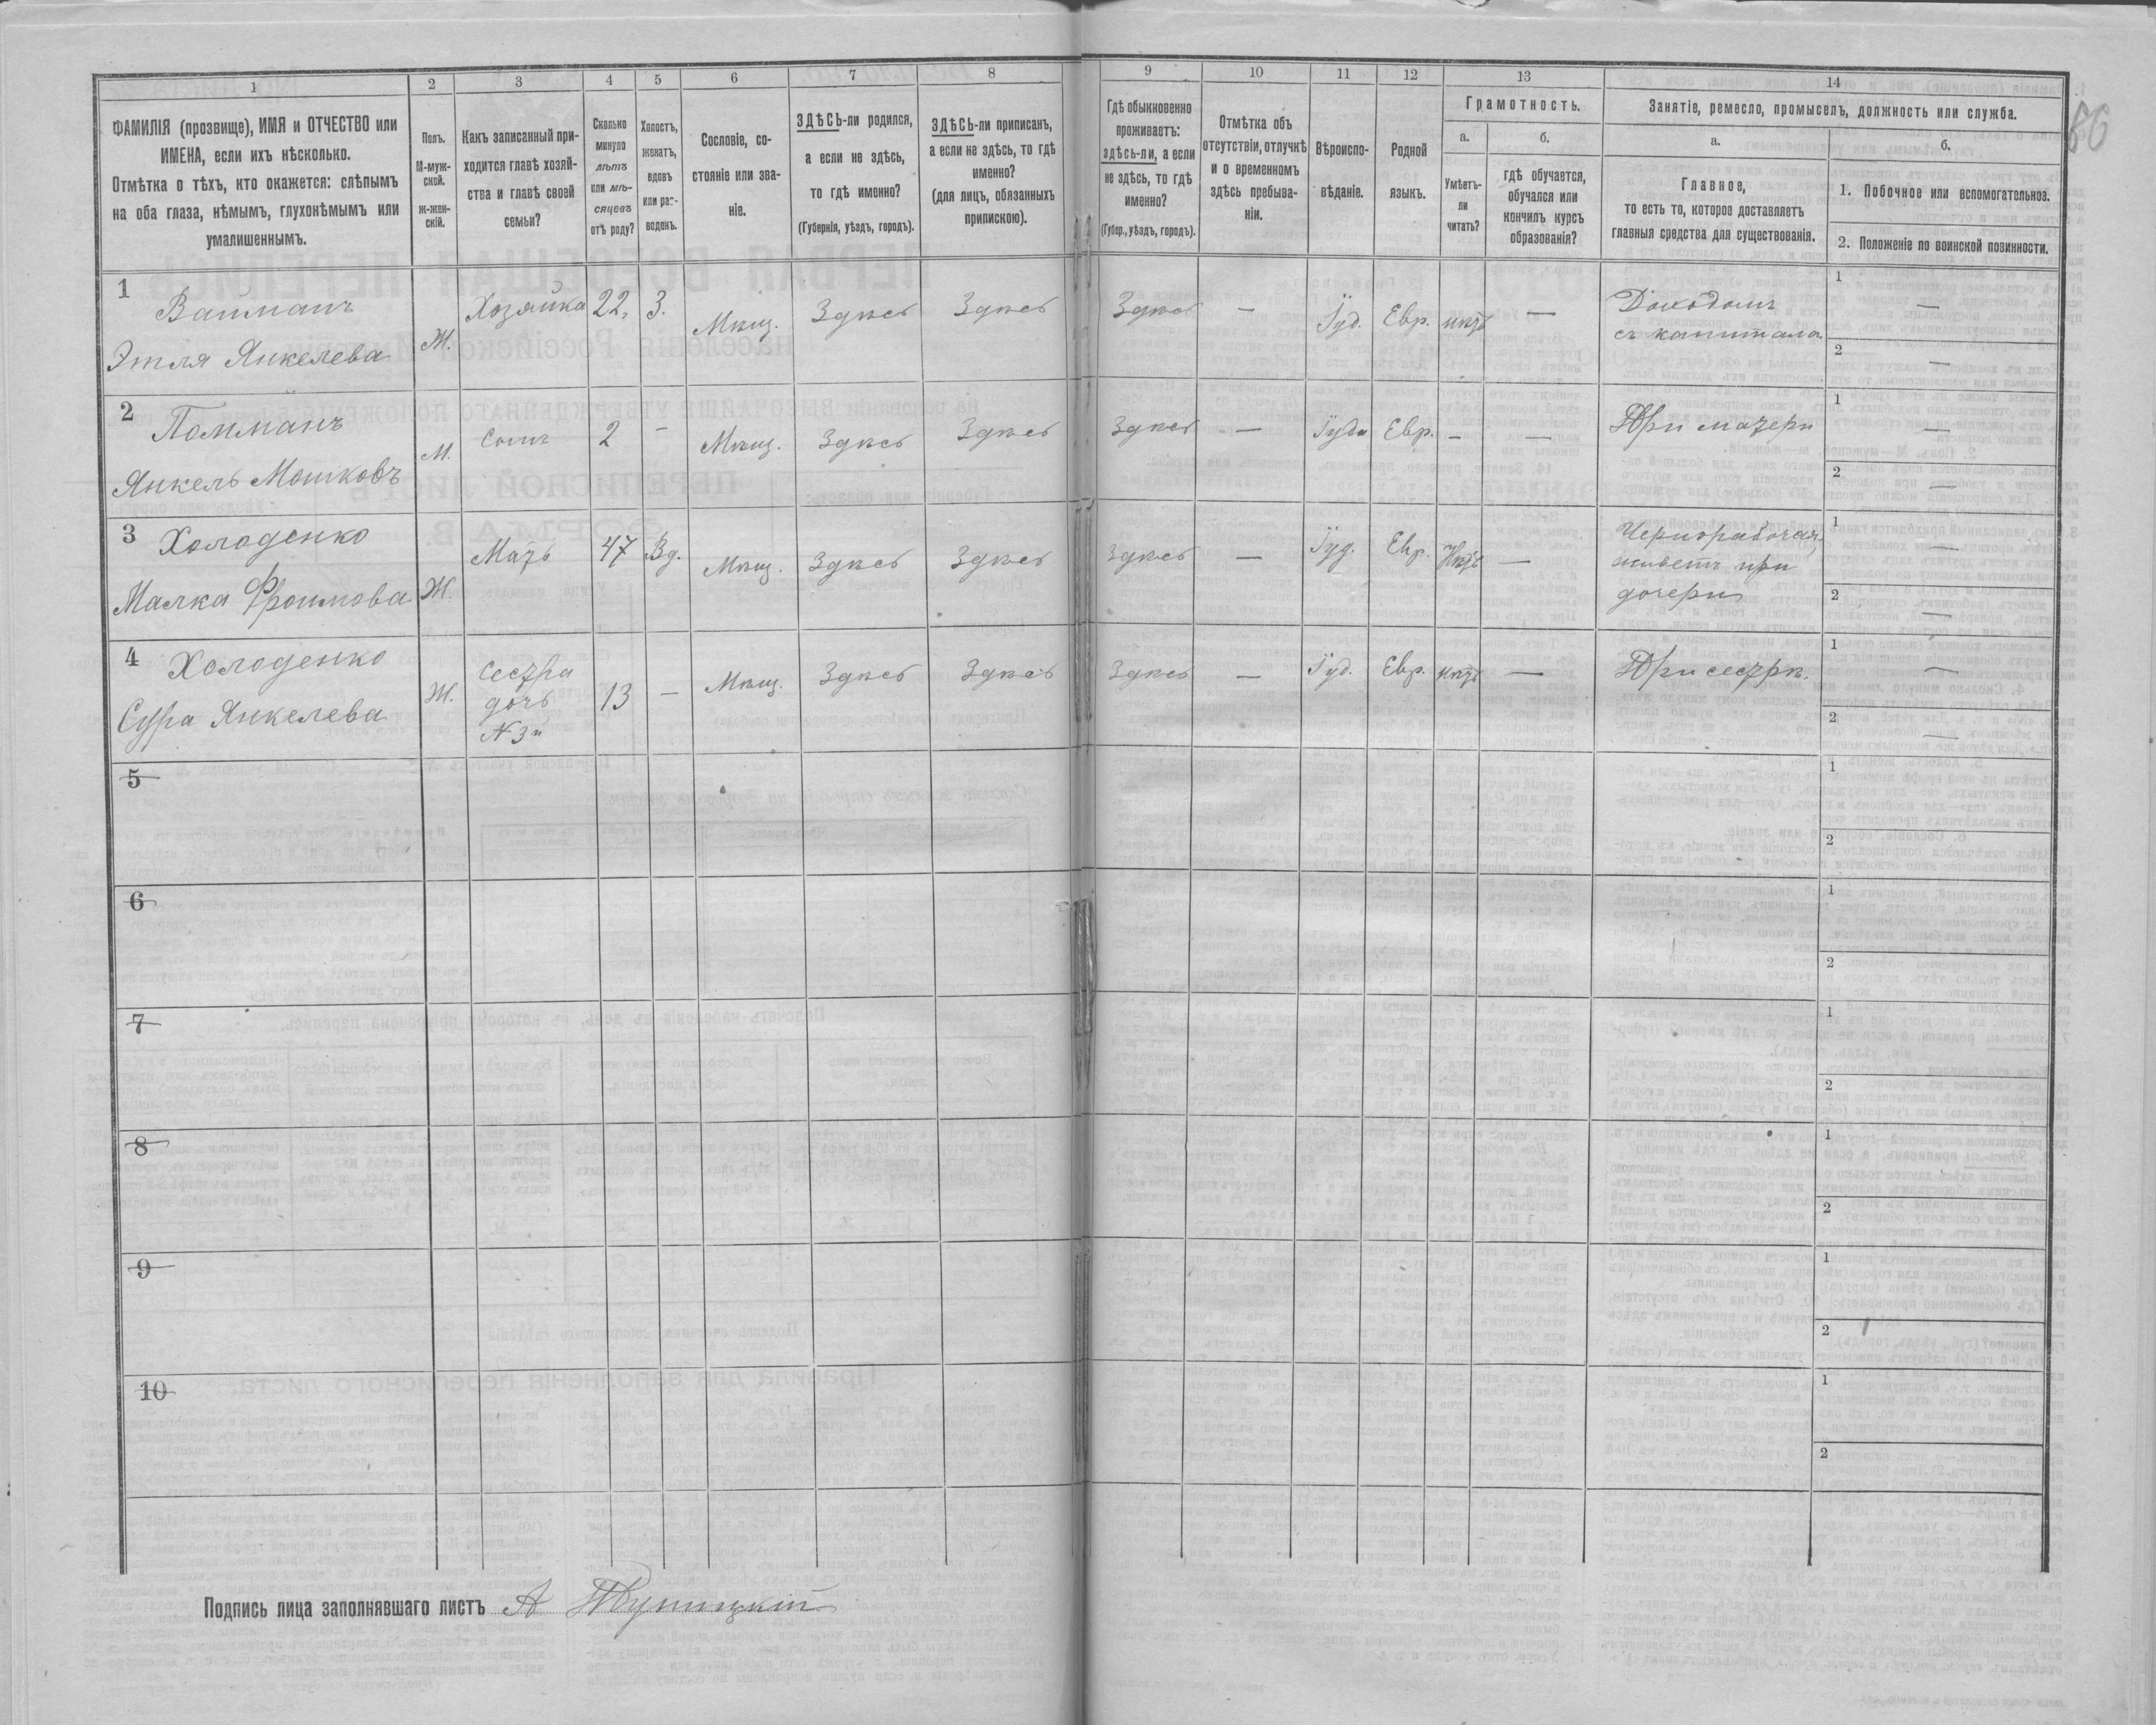 1 2 3 4 5 6 7 8 9 10 11 12 13 14
ФАМИЛІЯ (прозвище), ИМЯ и ОТЧЕСТВО или
ИМЕНА, если ихъ нѣсколько.
Отмѣтка о тѣхъ, кто окажется: слѣпымъ
на оба глаза, нѣмымъ, глухонѣмымъ или
умалишеннымъ.
Полъ.
М-муж-
ской.
ж-жен-
скій.
Какъ записанный при-
ходится главѣ хозяй-
ства и главѣ своей
семьи?
Сколько
минуло
лѣтъ
или мѣ-
сяцевъ
отъ роду?
Холостъ,
женатъ,
вдовъ
или раз-
веденъ.
Сословіе, со-
стояніе или зва-
ніе.
ЗДѢСЬ-ли родился,
а если не здѣсь,
то гдѣ именно?
(Губернія, уѣздъ, городъ).
ЗДѢСЬ-ли приписанъ,
а если не здѣсь, то гдѣ
именно?
(для лицъ, обязанныхъ
припискою).
Гдѣ обыкновенно
проживаетъ:
здѣсь-ли, а если
не здѣсь, то гдѣ
именно?
(Губер., уѣздъ, городъ).
Отмѣтка объ
отсутствіи, отлучкѣ
и о временномъ
здѣсь пребыва-
ніи.
Вѣроиспо-
вѣданіе.
Родной
языкъ.
Грамотность.
а.
Умѣетъ-
ли
читать?
б.
гдѣ обучается,
обучался или
кончилъ курсъ
образованія?
Занятіе, ремесло, промыселъ, должность или служба.
а.
Главное,
то есть то, которое доставляетъ
главныя средства для существованія.
б.
1. Побочное или вспомогательное.
2. Положеніе по воинской повинности.
1 Вайманъ
Этля Янкелева
Ж. Хозяйка 22, З. Мѣщ. Здѣсь Здѣсь Здѣсь — Іуд. Евр. нѣтъ —
Доходомъ
съ капитала
1 —
2 —
2
Янкель Мошковъ
М. Сынъ 2 - Мѣщ. Здѣсь Здѣсь Здѣсь — Іуд. Евр. - — При матери
1 —
2 —
3 Холоденко
Малка Фроимова
Ж. Мать 47 Вд. Мѣщ. Здѣсь Здѣсь Здѣсь — Іуд. Евр. Нѣтъ —
Чернорабочая,
живетъ при
дочери
1 —
2 —
4 Холоденко
Сура Янкелева
Ж. Сестра
дочь
N 3й
13 — Мѣщ. Здѣсь Здѣсь Здѣсь — Іуд. Евр. нѣтъ — При сестрѣ.
1 —
2 —
5 1
2
6 1
2
7 1
2
8 1
2
9 1
2
10 1
2
Подпись лица заполнявшаго листъ А